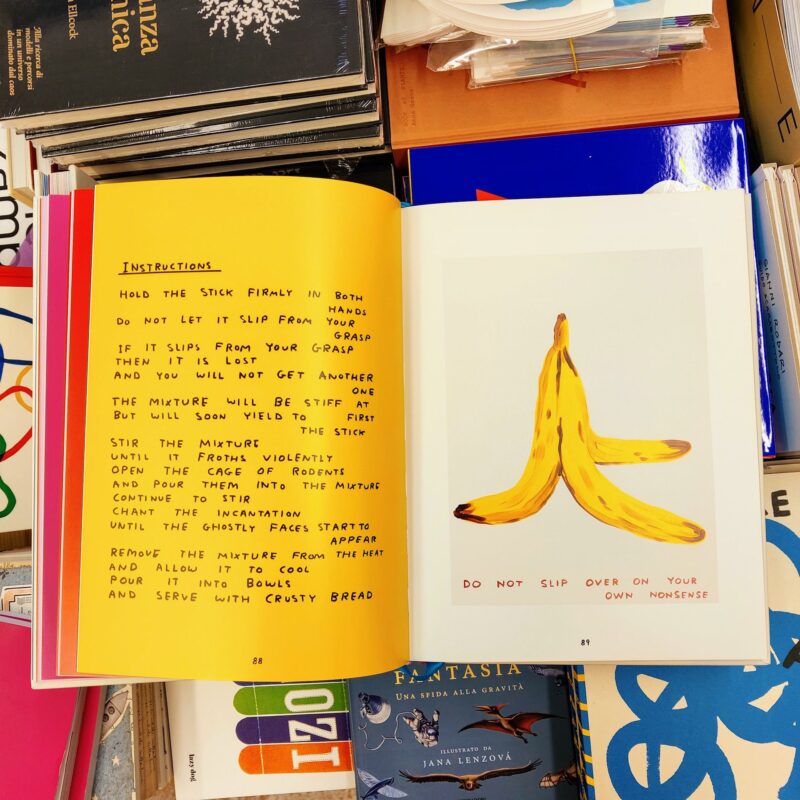 Ellcock
anza
nica
Alla ricerca di
modelli e percorsi
in un universo
dominato dal caos
INSTRUCTIONS
HOLD THE STICK FIRMLY IN BOTH
HANDS
DO NOT LET IT SLIP FROM YOUR
GRASP
IF IT SLIPS FROM YOUR GRASP
THEN IT IS LOST
AND YOU WILL NOT GET ANOTHER
ONE
THE MIXTURE WILL BE STIFF AT
BUT WILL SOON YIELD TO FIRST
THE STICK
STIR THE MIXTURE
UNTIL IT FROTHS VIOLENTLY
OPEN THE CAGE OF RODENTS
AND POUR THEM INTO THE MIXTURE
CONTINUE TO STIR
CHANT THE INCANTATION
UNTIL THE GHOSTLY FACES START TO
APPEAR
REMOVE THE MIXTURE FROM THE HEAT
AND ALLOW IT TO COOL
POUR IT INTO BOWLS
AND SERVE WITH CRUSTY BREAD
88
DO NOT SLIP OVER ON YOUR
OWN NONSENSE
89
GIANNI RODARI
FANTASIA
UNA SFIDA ALLA GRAVITÀ
ILLUSTRATO DA
JANA LENZOVÁ
OZI
lazy dog